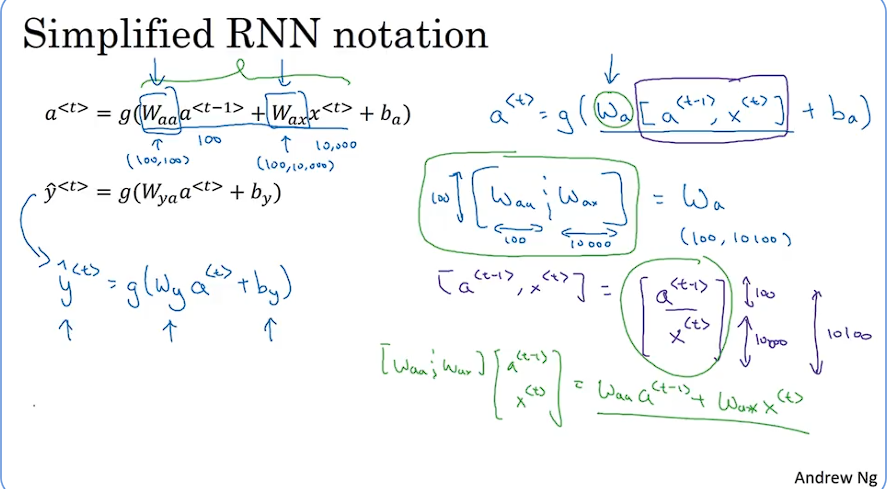 Simplified RNN notation
a<t> = g(Waaa<t−1> + Waxx<t> + ba)
100 10,000
(100,100) (100,10,000)
ŷ<t> = g(Wyaa<t> + by)
ŷ<t> = g(Wy a<t> + by)
a<t> = g(Wa [a<t-1>, x<t>] + ba)
100 [Waa ; Wax] = Wa
100 10000 (100, 10100)
[a<t-1>, x<t>] = [a<t-1> x<t>] 100
10000 10100
[Waa ; Wax] [a<t-1> x<t>] = Waa a<t-1> + Wax x<t>
Andrew Ng